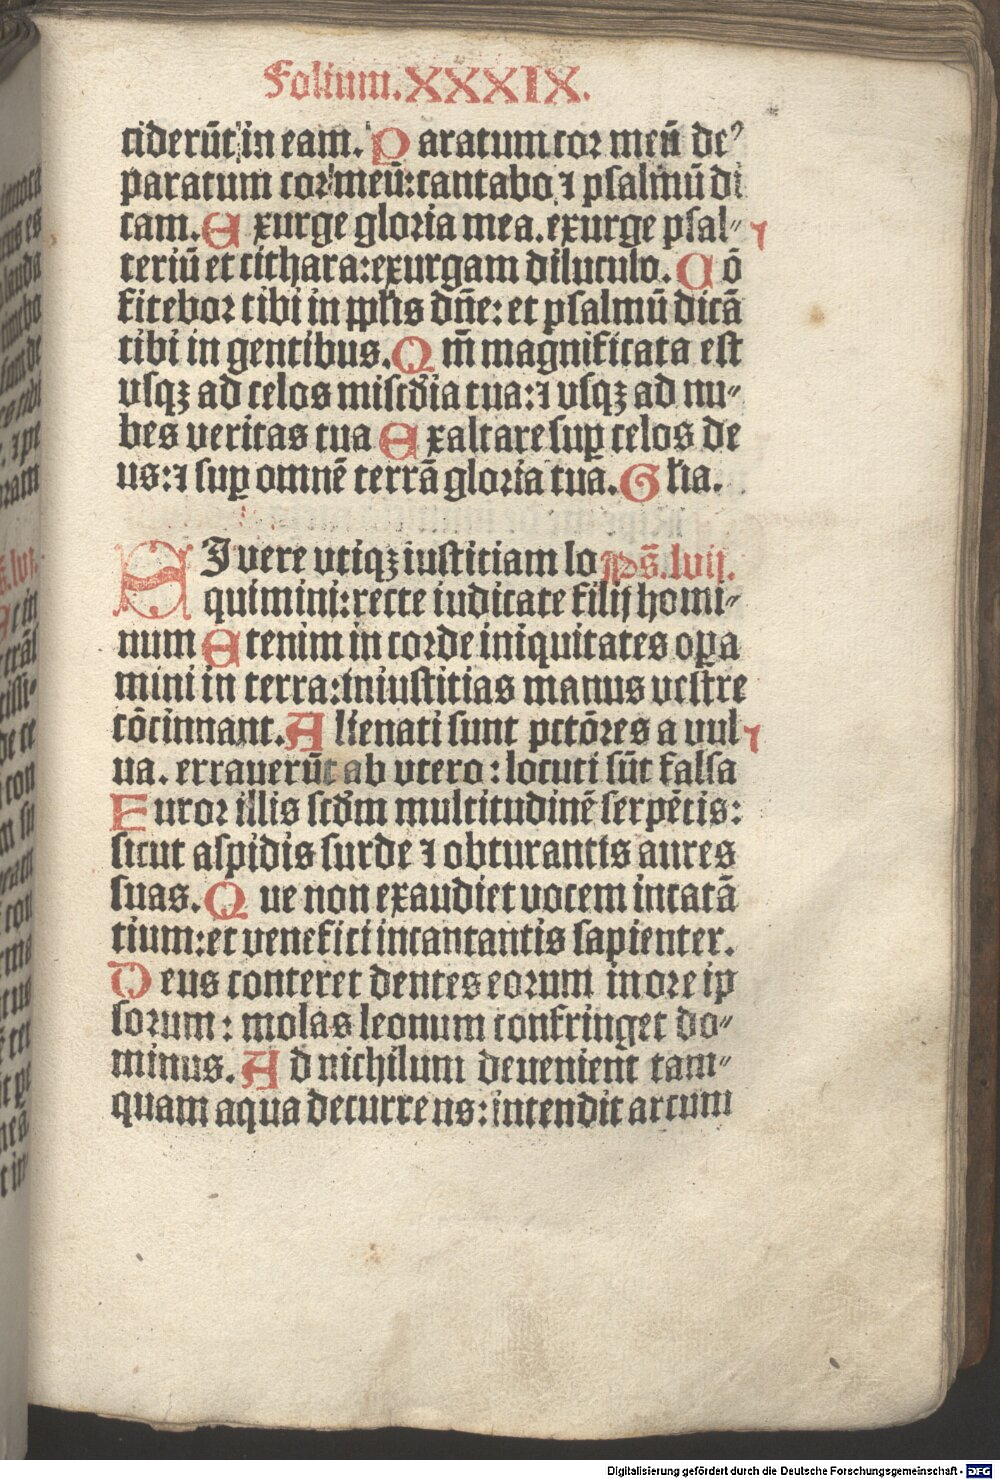 Folium.XXXIX.
ciderūt in eam. Paratum cor meū deꝰ
paratum cor meū:cantabo ⁊ psalmū di
cam. Exurge gloria mea.exurge psal⸗
teriū et cithara:exurgam diluculo. Cō
fitebor tibi in ppl̓is dn̄e: et psalmū dicā
tibi in gentibus. Qm̄ magnificata est
vsqꝫ ad celos miscd̓ia tua:⁊ vsqꝫ ad nu⸗
bes veritas tua Exaltare suꝑ celos de
us:⁊ suꝑ omnē terrā gloria tua. Gl̓ia.
SI vere vtiqꝫ iusticiam lo Ps̄.lvij.
quimini:recte iudicate filij homi⸗
num Etenim in corde iniquitates oꝑa
mini in terra:iniusticias manus vestre
cōcinnant. Alienati sunt pctōres a vul
ua. errauerūt ab vtero: locuti sūt falsa
Furor illis scd̓m multitudinē serpētis:
sicut aspidis surde ⁊ obturantis aures
suas. Que non exaudiet vocem incātā
tium:et venefici incantantis sapienter.
Deus conteret dentes eorum in ore ip
sorum: molas leonum confringet do⸗
minus. Ad nichilum deuenient tam⸗
quam aqua decurrens:intendit arcum
Digitalisierung gefördert durch die Deutsche Forschungsgemeinschaft - DFG